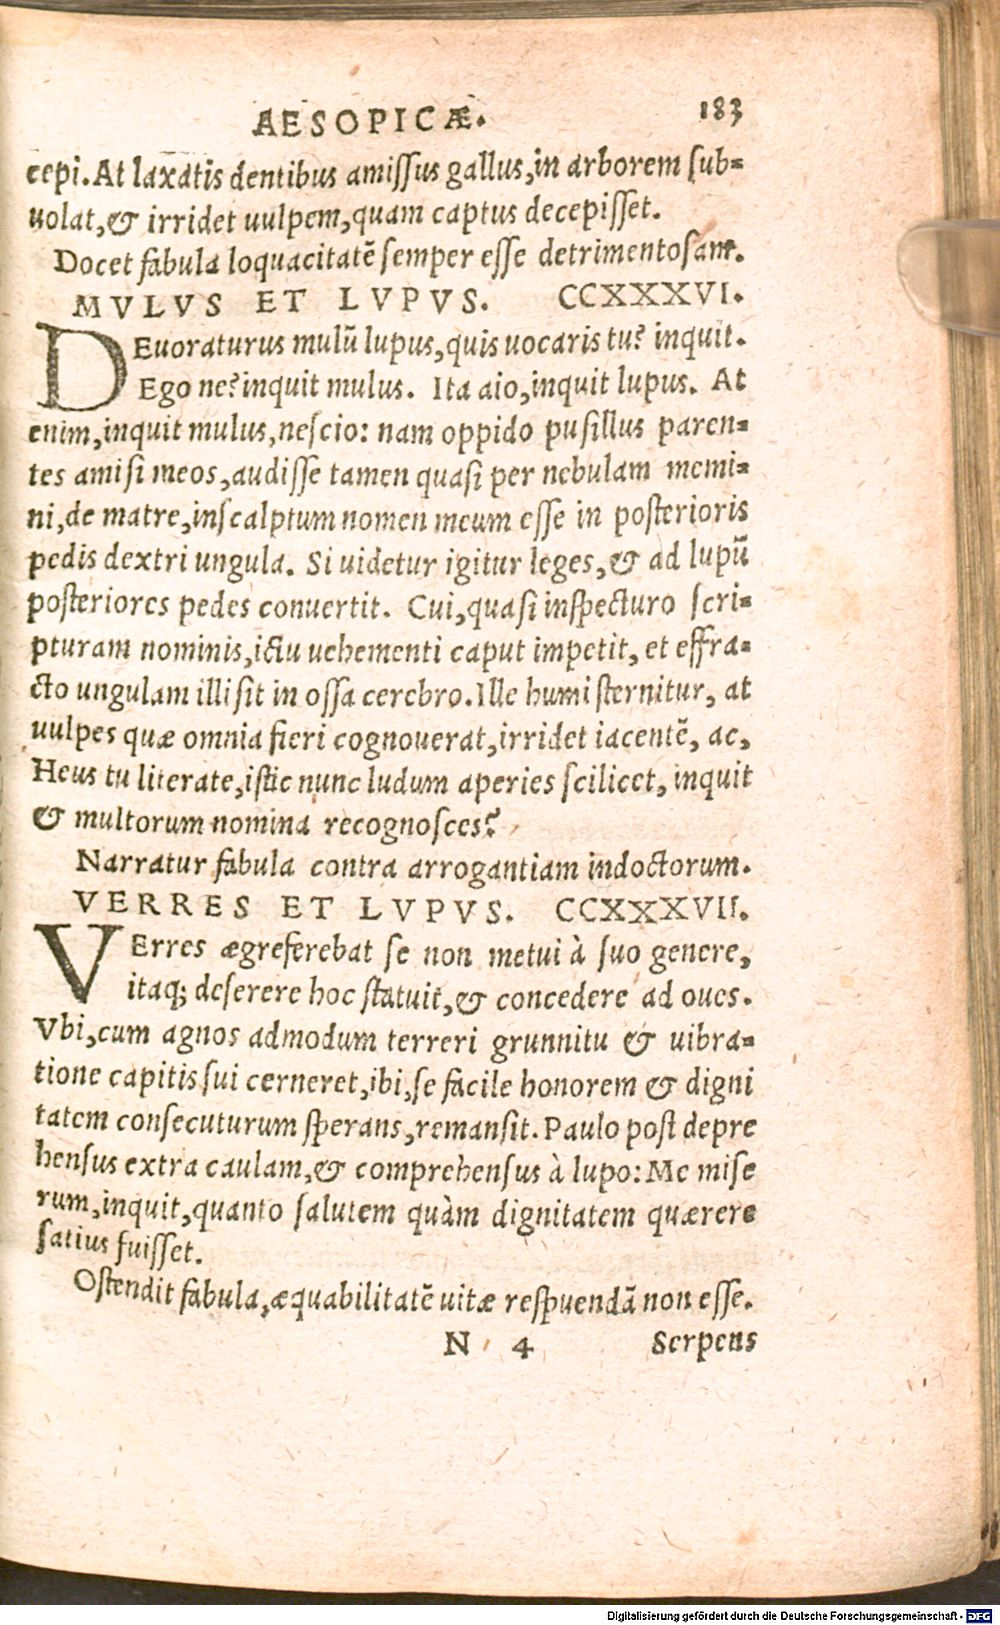 AESOPICÆ. 183
cepi. At laxatis dentibus amissus gallus, in arborem sub-
uolat, & irridet uulpem, quam captus decepisset.
Docet fabula loquacitatē semper esse detrimentosam.
MVLVS ET LVPVS. CCXXXVI.
DEuoraturus mulū lupus, quis uocaris tu? inquit.
Ego ne? inquit mulus. Ita aio, inquit lupus. At
enim, inquit mulus, nescio: nam oppido pusillus paren-
tes amisi meos, audisse tamen quasi per nebulam memi-
ni, de matre, inscalptum nomen meum esse in posterioris
pedis dextri ungula. Si uidetur igitur leges, & ad lupū
posteriores pedes conuertit. Cui, quasi inspecturo scri-
pturam nominis, ictu uehementi caput impetit, et effra-
cto ungulam illisit in ossa cerebro. Ille humi sternitur, at
uulpes quæ omnia fieri cognouerat, irridet iacentē, ac,
Heus tu literate, istic nunc ludum aperies scilicet, inquit
& multorum nomina recognosces?
Narratur fabula contra arrogantiam indoctorum.
VERRES ET LVPVS. CCXXXVII.
VErres ægreferebat se non metui à suo genere,
itaq; deserere hoc statuit, & concedere ad oues.
Vbi, cum agnos admodum terreri grunnitu & uibra-
tione capitis sui cerneret, ibi, se facile honorem & digni
tatem consecuturum sperans, remansit. Paulo post depre
hensus extra caulam, & comprehensus à lupo: Me mise
rum, inquit, quanto salutem quàm dignitatem quærere
satius fuisset.
Ostendit fabula, æquabilitatē uitæ respuendā non esse.
N 4 Serpens
Digitalisierung gefördert durch die Deutsche Forschungsgemeinschaft - DFG